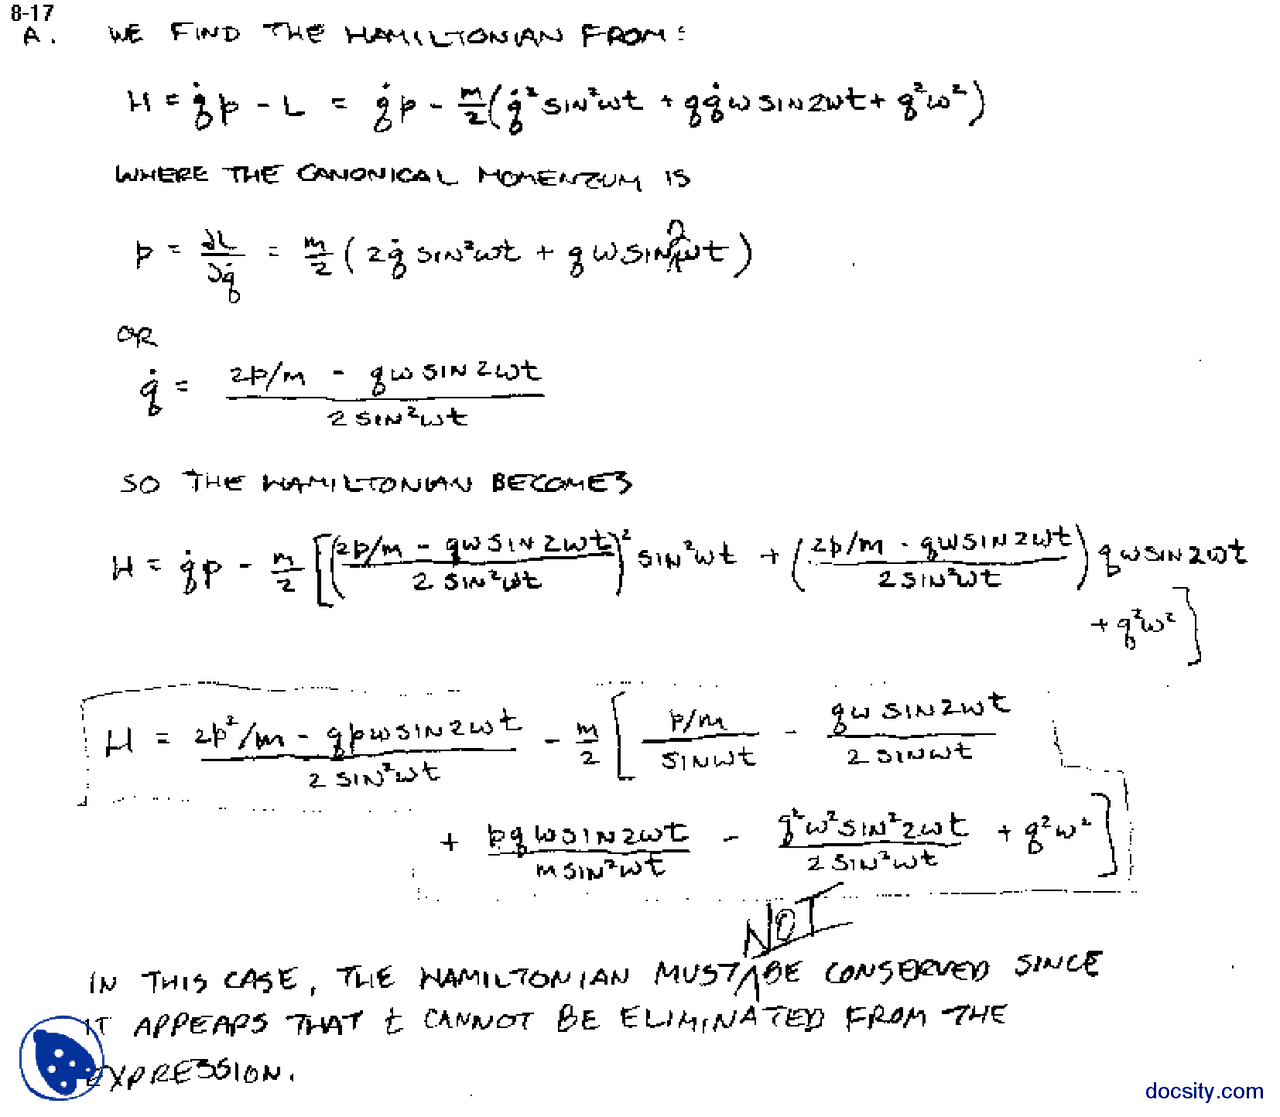 8-17
A. WE FIND THE HAMILTONIAN FROM:
H = q̇p - L = q̇p - m/2 (q̇² SIN²ωt + qq̇ω SIN2ωt + q²ω²)
WHERE THE CANONICAL MOMENTUM IS
p = ∂L/∂q̇ = m/2 (2q̇ SIN²ωt + qω SIN2ωt)
OR
q̇ = (2p/m - qω SIN2ωt) / (2 SIN²ωt)
SO THE HAMILTONIAN BECOMES
H = q̇p - m/2 [((2p/m - qω SIN2ωt) / (2 SIN²ωt))² SIN²ωt + ((2p/m - qω SIN2ωt) / (2 SIN²ωt)) qω SIN2ωt
+ q²ω²]
H = (2p²/m - qpω SIN2ωt) / (2 SIN²ωt) - m/2 [(p/m) / (SINωt) - (qω SIN2ωt) / (2 SINωt)
+ (pqω SIN2ωt) / (m SIN²ωt) - (q²ω² SIN²2ωt) / (2 SIN²ωt) + q²ω²]
IN THIS CASE, THE HAMILTONIAN MUST NOT BE CONSERVED SINCE
IT APPEARS THAT t CANNOT BE ELIMINATED FROM THE
EXPRESSION.
docsity.com